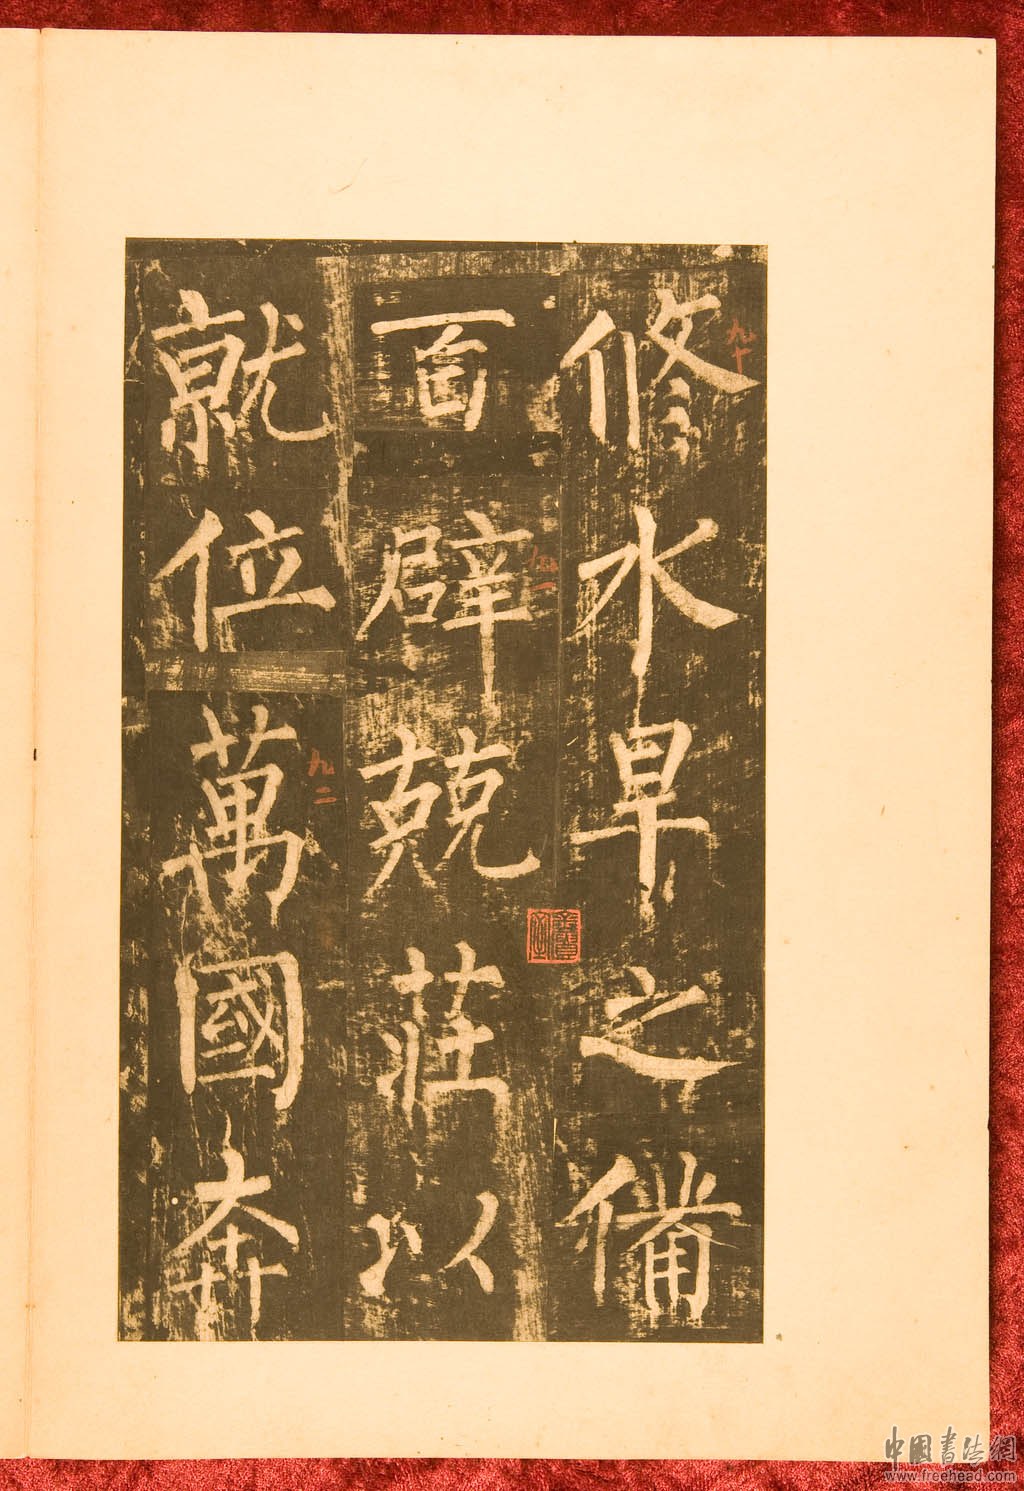 修水旱之備
百辟兢莊以
就位萬國奔
九十
九一
九二
中國書法網
www.freehead.com